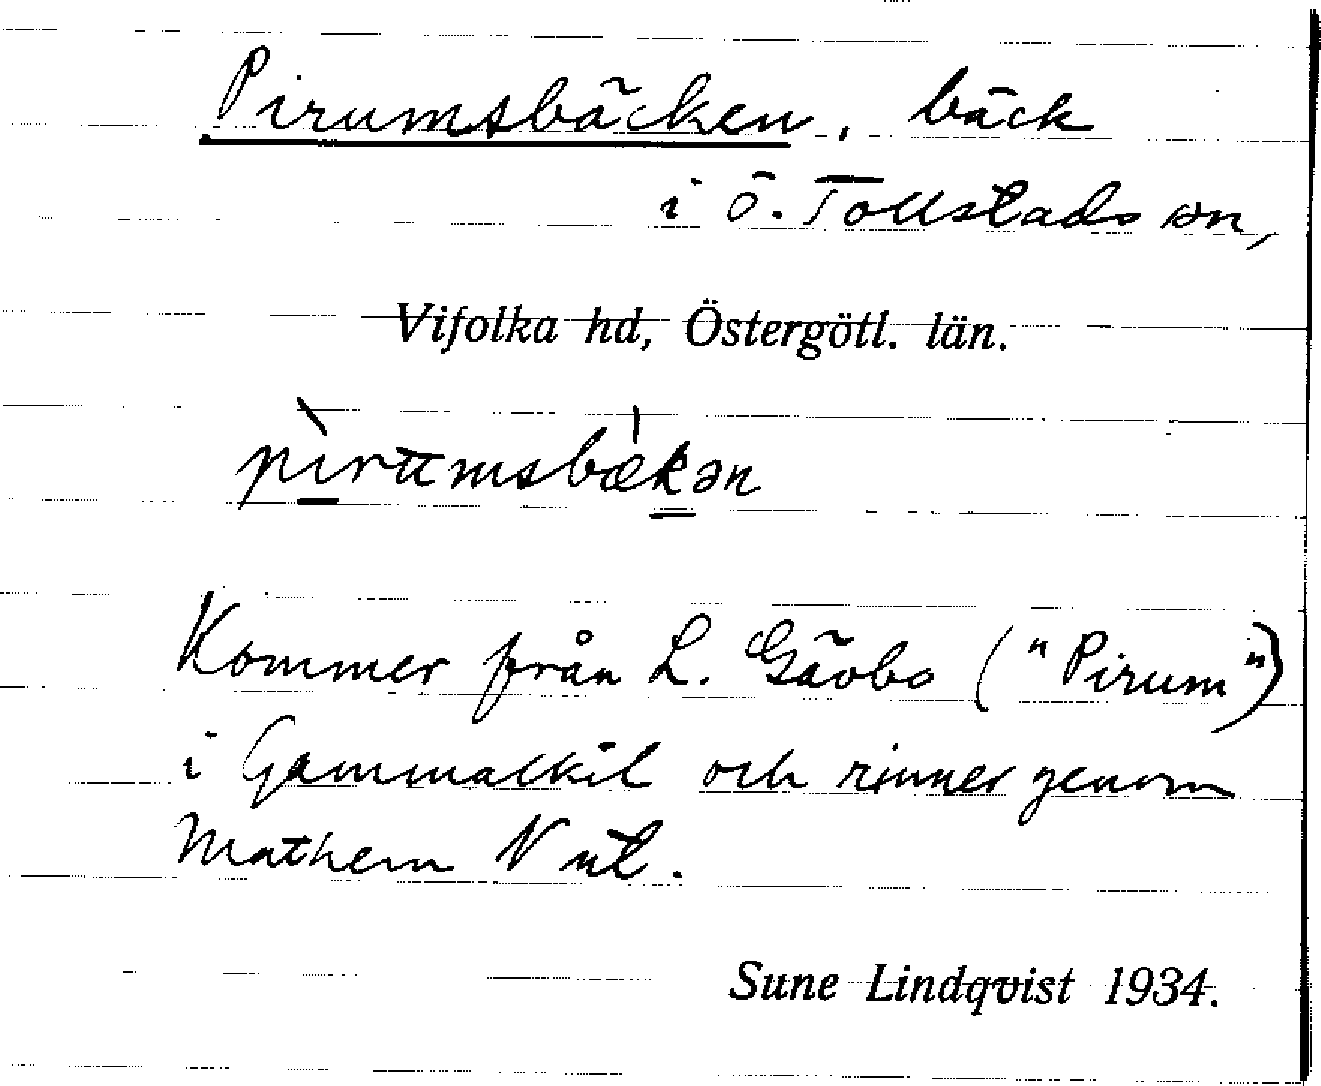 Pirumsbäcken, bäck
i Ö. Tollstads sn,
Vifolka hd, Östergötl. län.
pìrumsbækən
Kommer från L. Gävbo ("Pirum")
i Gammalkil och rinner genom
Mathem N ut.
Sune Lindqvist 1934.